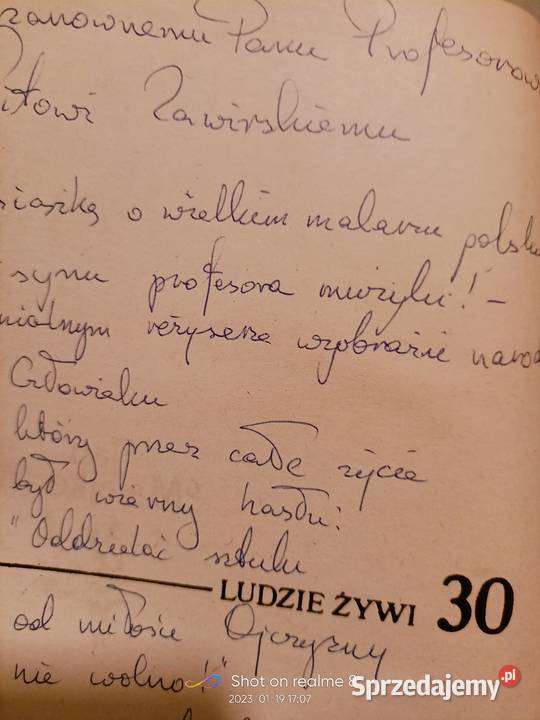 zanownemu Panu Profesorow
itowi Zawirskiemu
siążką o wielkiem malarzu polski
synu profesora muzyki! -
nialnym reżyserze wyobraźni narod
Człowieku
który przez całe życie
był wierny hasłu:
"Oddzielać sztuki
LUDZIE ŻYWI 30
od miłości Ojczyzny
nie wolno!"
Shot on realme 8
2023.01.19 17:07
Sprzedajemy.pl